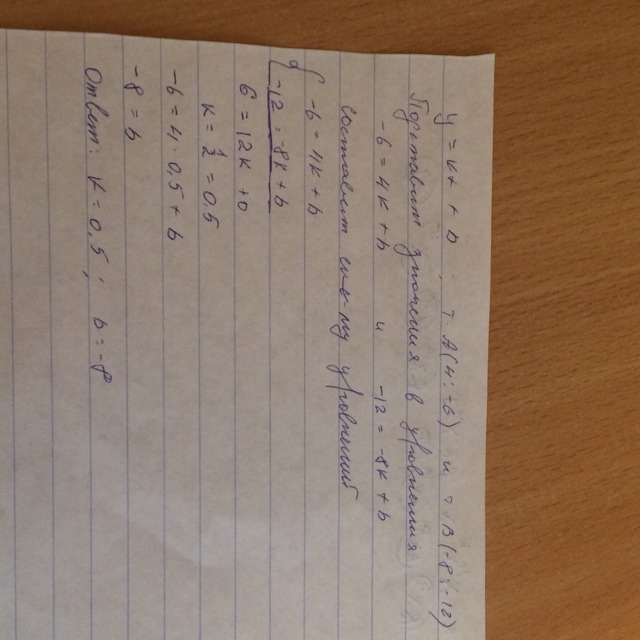 y = kx + b . т A(4; -6) и т B(-8; -12)
Подставим значения в уравнения
-6 = 4k + b и -12 = -8k + b
составим систему уравнений
{ -6 = 4k + b
-12 = -8k + b
6 = 12k + 0
k = 1/2 = 0,5
-6 = 4 · 0,5 + b
-8 = b
Ответ: k = 0,5 ; b = -8